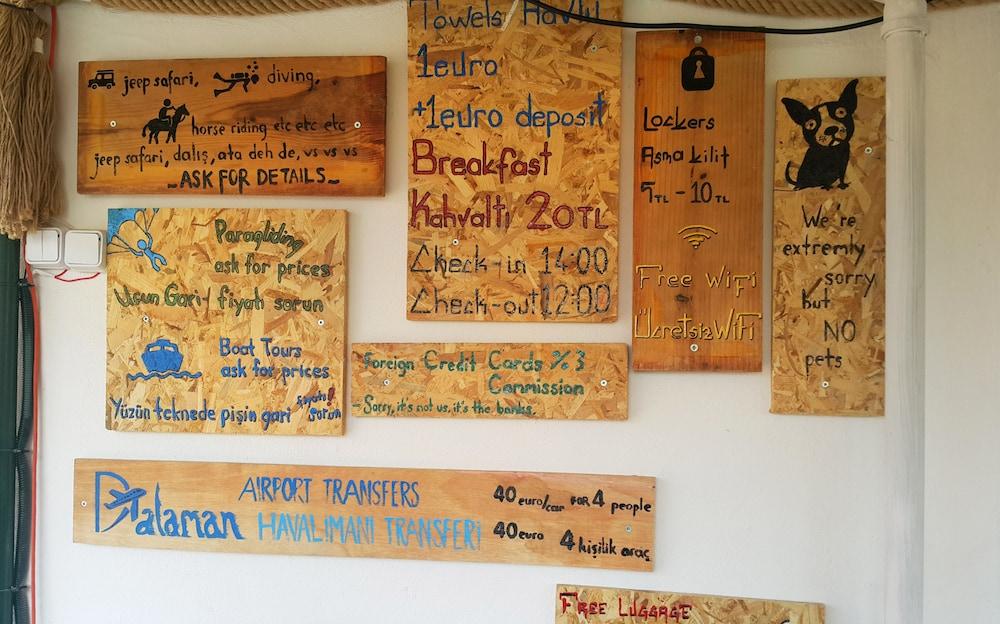 jeep safari, diving,
horse riding etc etc etc
jeep safari, dalış, ata deh de, vs vs vs
ASK FOR DETAILS
Paragliding
ask for prices
Uçun Gari-! fiyatı sorun
Boat Tours
ask for prices
Yüzün teknede pişin gari fiyatı! sorun
Towels Havlu
1euro
+1euro deposit
Breakfast
Kahvaltı 20TL
Check-in 14:00
Check-out 12:00
Foreign Credit Cards %3
Commission
- Sorry, it's not us, it's the banks.
Lockers
Asma kilit
5TL - 10TL
Free WiFi
Ücretsiz WiFi
We're
extremly
sorry
but
NO
pets
Dalaman
AIRPORT TRANSFERS
HAVALİMANI TRANSFERİ
40 euro/car FOR 4 people
40 euro 4 kişilik araç
FREE LUGGAGE